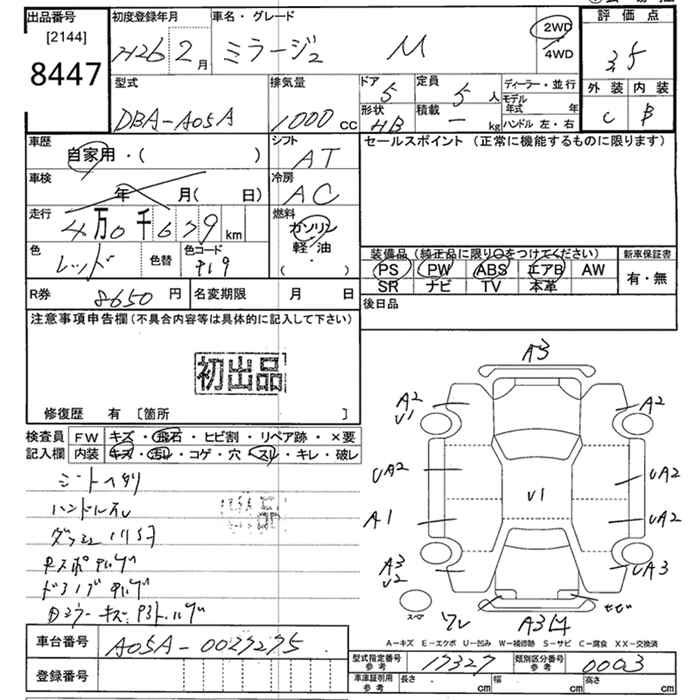 出品番号
[2144]
8447
初度登録年月
H26 2月
車名・グレード
ミラージュ M
2WD
4WD
評価点
3.5
外装 内装
C B
型式
DBA-A05A
排気量
1000 CC
ドア 5
定員 5 人
形状 HB
積載 — kg
ディーラー・並行
モデル年式 年
ハンドル 左・右
車歴
自家用・( )
シフト
AT
車検
年 月( 日)
冷房
AC
走行
4万0千679 km
燃料
ガソリン
軽油
・
( )
色
レッド
色替
色コード
P19
セールスポイント (正常に機能するものに限ります)
装備品(純正品に限り○をつけてください)
PS PW ABS エアB AW
SR ナビ TV 本革
新車保証書
有・無
R券 8650 円
名変期限 月 日
後日品
注意事項申告欄(不具合内容等は具体的に記入して下さい)
初出品
修復歴 有 [箇所 ]
検査員
記入欄
FW キズ・飛石・ヒビ割・リペア跡・×要
内装 キズ・汚レ・コゲ・穴・スレ・キレ・破レ
シートヘタリ
ハンドルスレ
A3
A2
U1
A2
UA2
UA2
U1
A1
UA2
A3
U2
UA3
スペア
ワレ
A3
A-キズ E-エクボ U-凹み W-補修跡 S-サビ C-腐食 XX-交換済
車台番号 A05A-0027275
登録番号
型式指定番号
参考
17327
類別区分番号
参考
0003
車庫証明用
参考
長さ cm
幅 cm
高さ cm